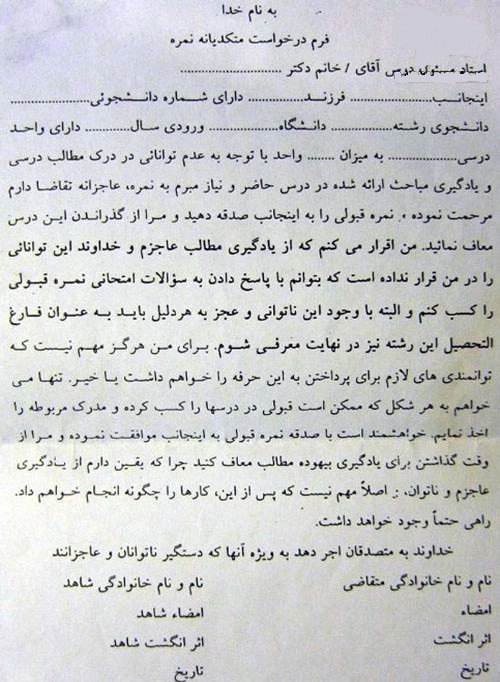 به نام خدا
فرم درخواست متکدیانه نمره
استاد مسئول درس آقای / خانم دکتر ..............................
اینجانب..................... فرزند............. دارای شماره دانشجوئی.....................
دانشجوی رشته................ دانشگاه.................. ورودی سال............ دارای واحد
درسی.................. به میزان ....... واحد با توجه به عدم توانائی در درک مطالب درسی
و یادگیری مباحث ارائه شده در درس حاضر و نیاز مبرم به نمره، عاجزانه تقاضا دارم
مرحمت نموده ، نمره قبولی را به اینجانب صدقه دهید و مرا از گذراندن این درس
معاف نمائید. من اقرار می کنم که از یادگیری مطالب عاجزم و خداوند این توانائی
را در من قرار نداده است که بتوانم با پاسخ دادن به سؤالات امتحانی نمره قبولی
را کسب کنم و البته با وجود این ناتوانی و عجز به هردلیل باید به عنوان فارغ
التحصیل این رشته نیز در نهایت معرفی شوم. برای من هرگز مهم نیست که
توانمندی های لازم برای پرداختن به این حرفه را خواهم داشت یا خیر. تنها می
خواهم به هر شکل که ممکن است قبولی در درسها را کسب کرده و مدرک مربوطه را
اخذ نمایم. خواهشمند است با صدقه نمره قبولی به اینجانب موافقت نموده و مرا از
وقت گذاشتن برای یادگیری بیهوده مطالب معاف کنید چرا که یقین دارم از یادگیری
عاجزم و ناتوان. و اصلاً مهم نیست که پس از این، کارها را چگونه انجام خواهم داد.
راهی حتماً وجود خواهد داشت.
خداوند به متصدقان اجر دهد به ویژه آنها که دستگیر ناتوانان و عاجزانند
نام و نام خانوادگی متقاضی نام و نام خانوادگی شاهد
امضاء امضاء شاهد
اثر انگشت اثر انگشت شاهد
تاریخ تاریخ